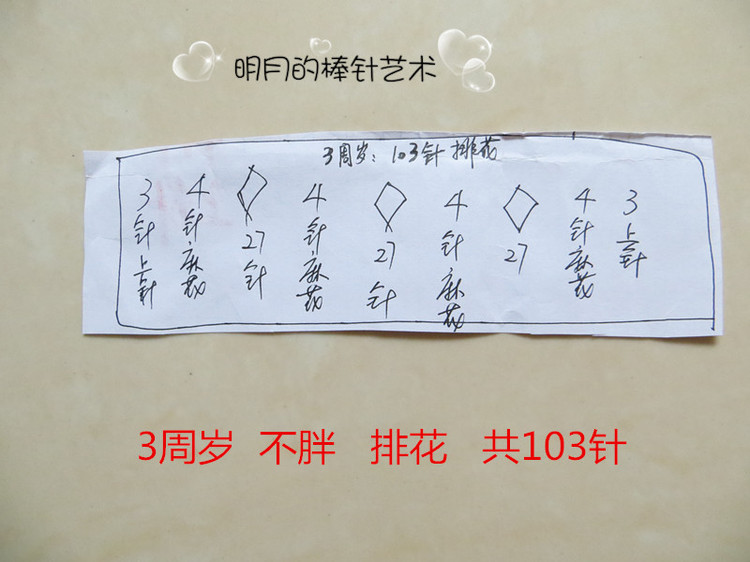 明月的棒针艺术
3周岁：103针排花
3针上针
4针麻花
27针
4针麻花
27针
4针麻花
27
4针麻花
3上针
3周岁 不胖 排花 共103针